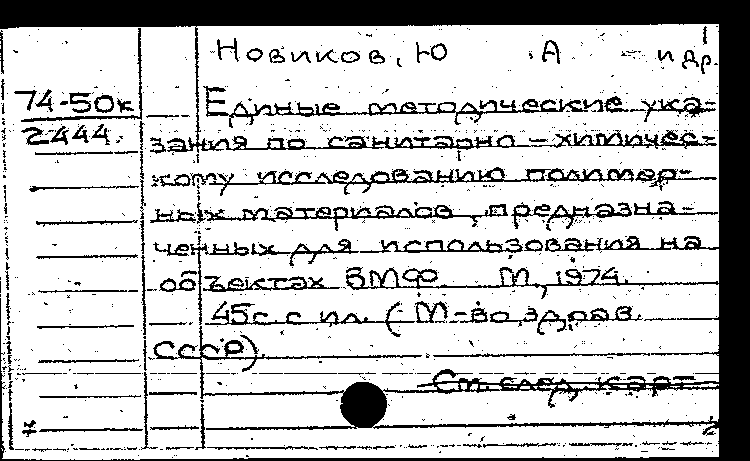 Новиков, Ю .А и др.
74-50к
2444.
Единые методические ука=
зания по санитарно-химичес=
кому исследованию полимер-
ных материалов, предназна-
ченных для использования на
объектах ВМФ. М., 1974.
45с. с ил. (М-во здрав.
СССР).
См. след. карт